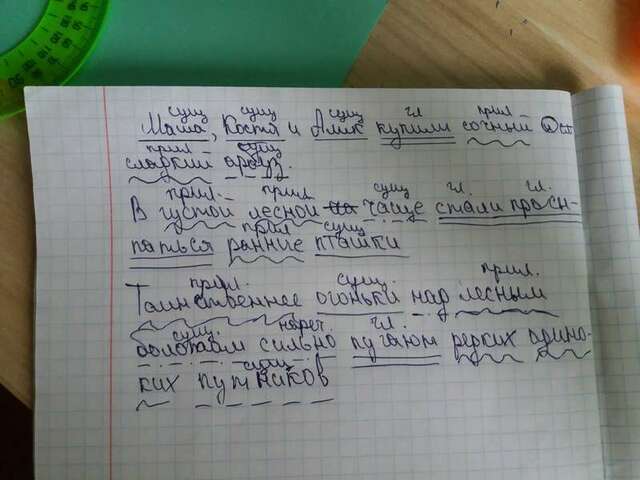 сущ сущ сущ гл прил
Маша, Костя и Алик купили сочный
прил сущ
сладкий арбуз.
прил. прил сущ гл. гл.
В густой лесной чаще стали просы-
прил сущ
паться ранние пташки
прил. сущ. прил.
Таинственные огоньки над лесным
сущ. нареч. гл.
болотами сильно пугают редких одино-
сущ
ких путников